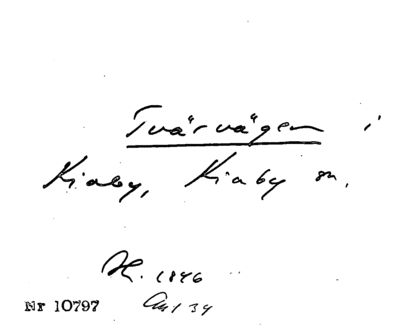 Tvärvägen i
Kiaby, Kiaby sn.
H. 1846
Nr 10797